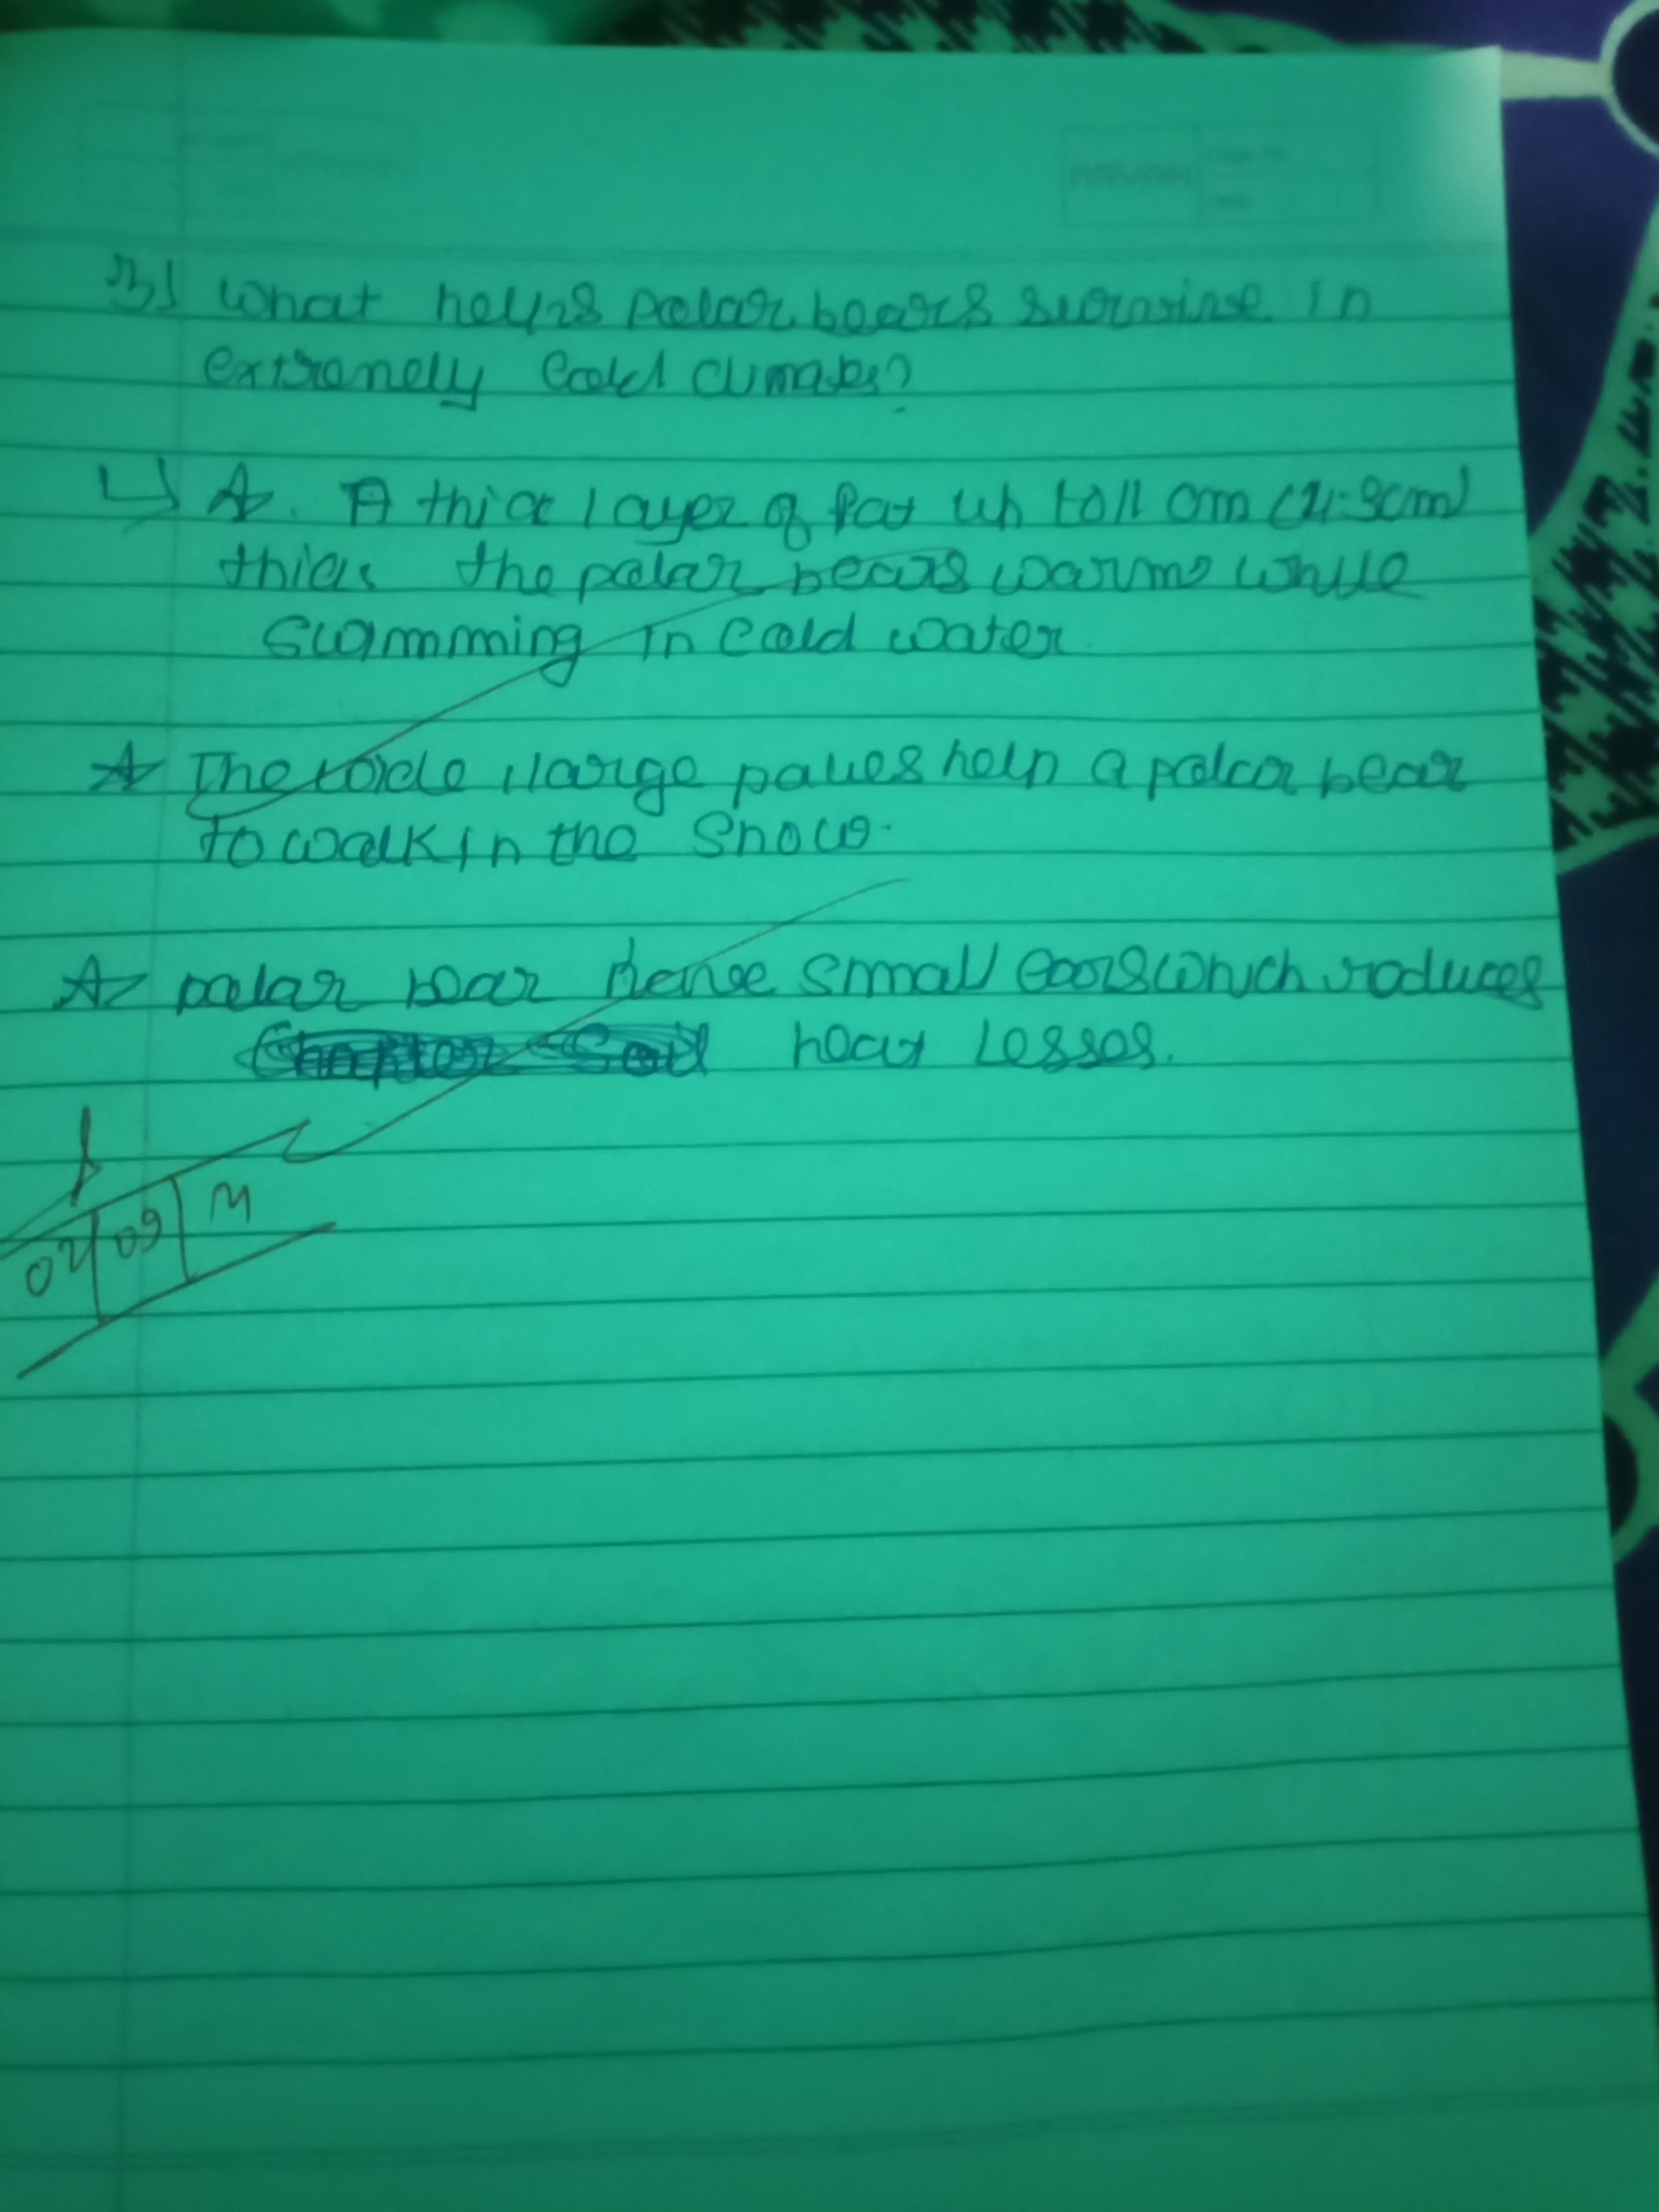 3) What helps polar bears survive in
extremely cold climates?
A. A thick layer of fat up to 11 cm (4.9cm)
thick the polar bears warms while
swamming in cold water
The wide large paues help a polar bear
to walk in the snow.
polar bear have small ears which reduces
heat Losses.
02/09 M